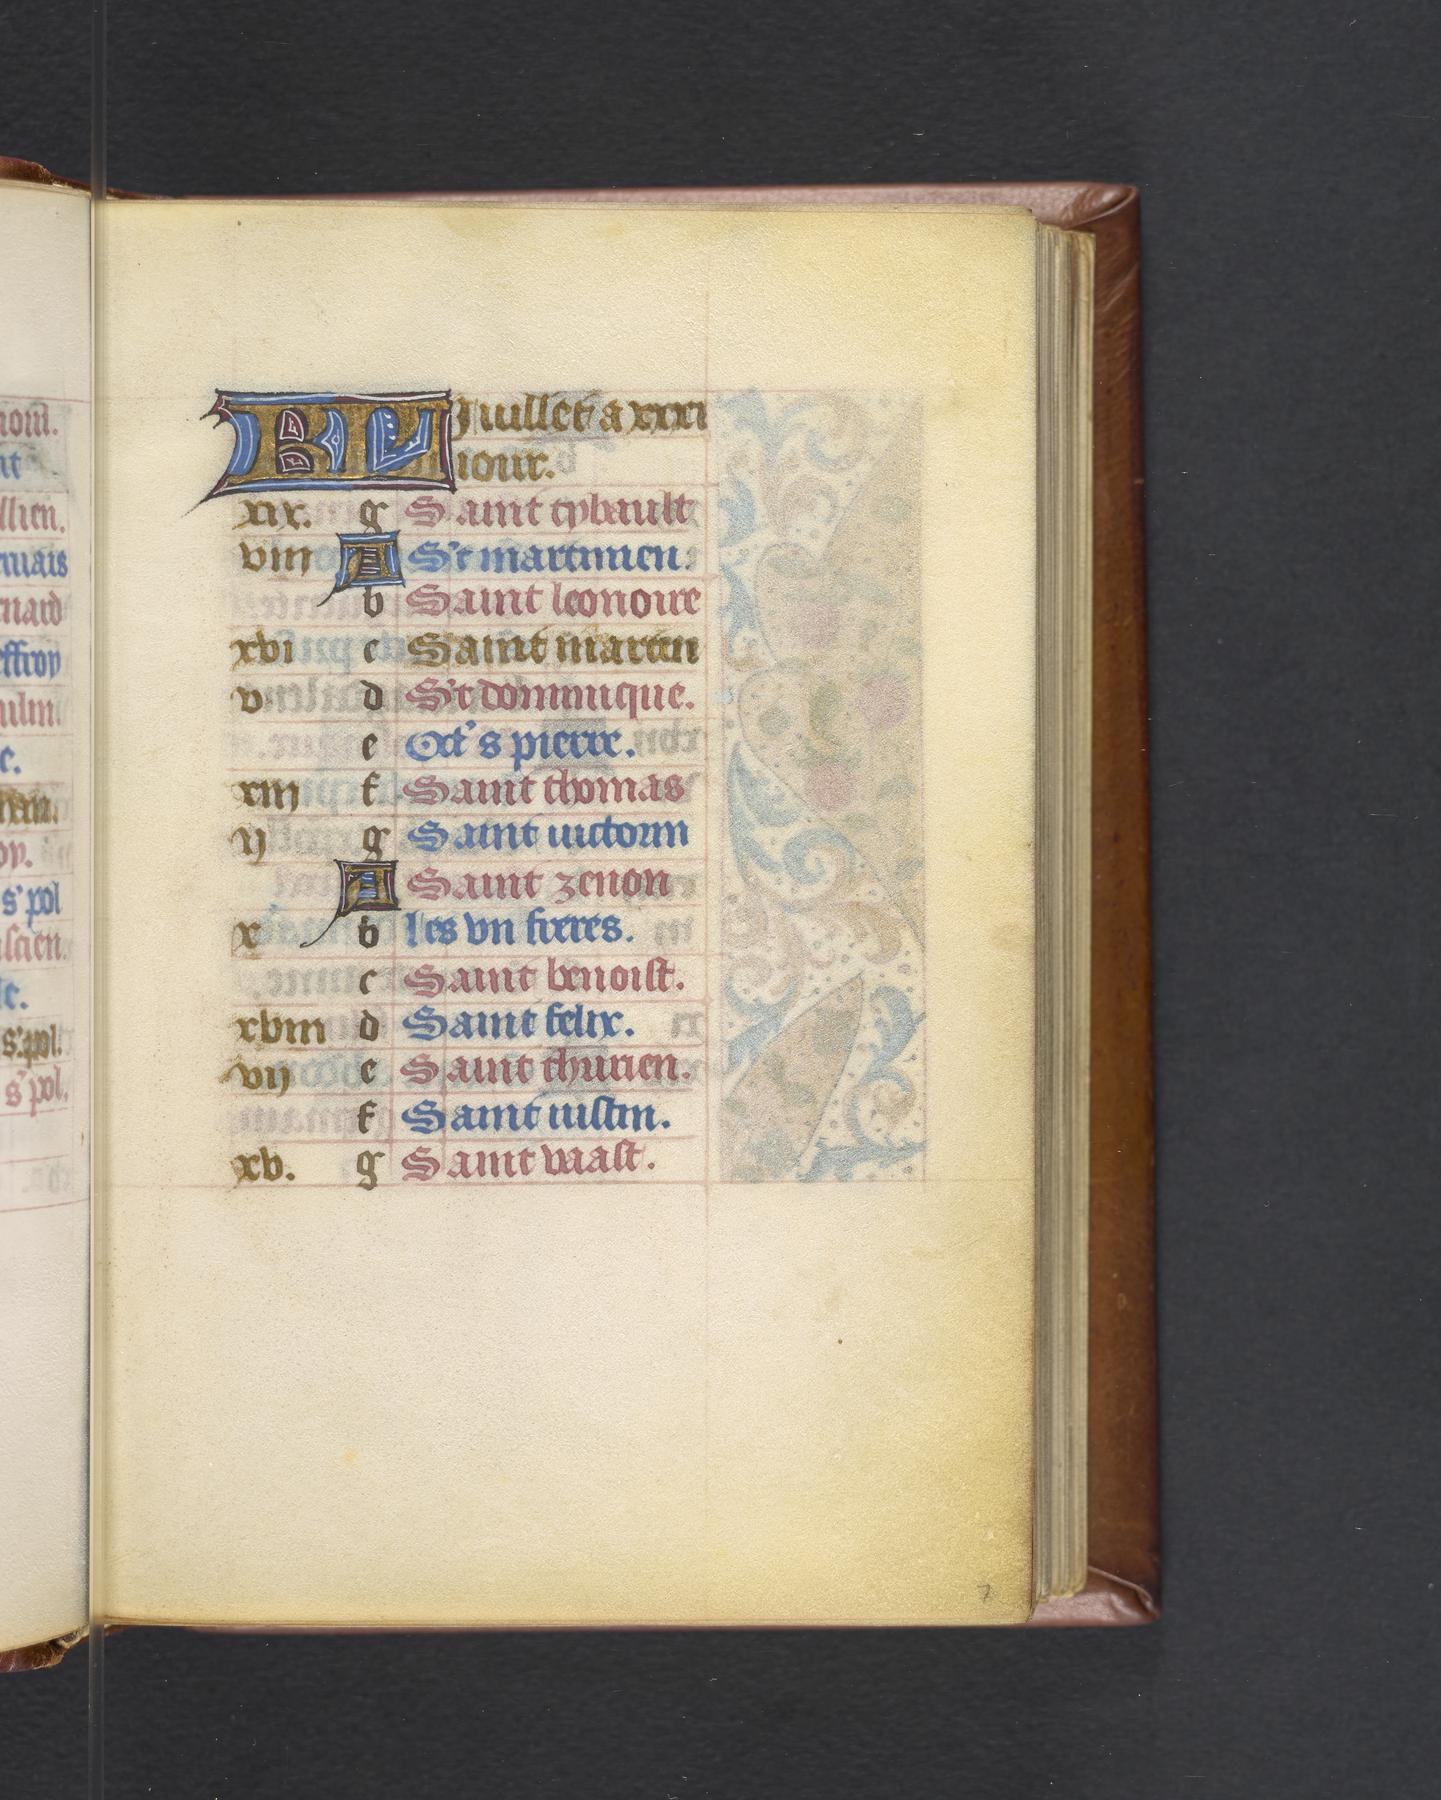 noul.
nt
llien.
ruais
rnard
effroy
c.
s' pol
scien.
s' pol.
s' pol.
KL Juillet a xxxi
iour.
xix. g Saint tybault
viii A S't martinien.
b Saint leonoire
xvi c Saint martin
v d S't dominique.
e Oct' s pierre.
xiii f Saint thomas
ii g Saint uictorin
A Saint zenon
x b les vii freres.
c Saint benoist.
xviii d Saint felix.
vii e Saint thurien.
f Saint iustin.
xv. g Saint vaast.
7